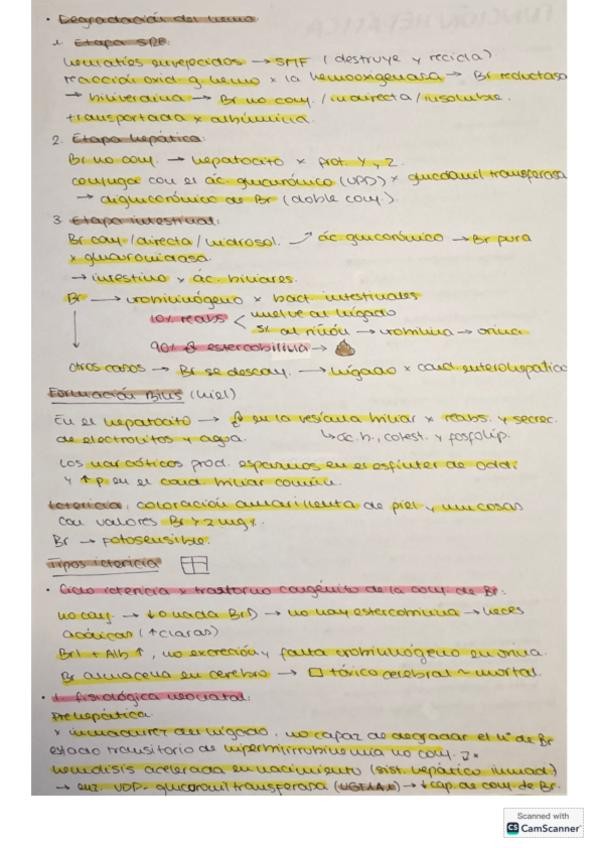 • Degradación del hemo.
1. Etapa SRE.
Hematíes envejecidos → SMF (destruye y recicla)
reacción oxid g. hemo x la hemooxigenasa → Br reductasa
→ biliverdina → Br no conj. / indirecta / insoluble.
transportada x albúmina.
2. Etapa hepática:
Br no conj. → hepatocito x prot. Y, Z.
conjugar con el ác. glucurónico (UPD) x glucdonil transferasa
→ diglucurónico de Br (doble conj.)
3 Etapa intestinal:
Br conj / directa / hidrosol. → ác glucurónico → Br pura
x glucuronidasa.
→ intestino x ác. biliares.
Br → urobilinógeno x bact. intestinales
10% reabs < vuelve al hígado
5% al riñón → urobilina → orina
90% estercobilina →
otros casos → Br se desconj. → hígado x cond. enterohepático
Formación Bilis (hiel)
En el hepatocito → en la vesícula biliar x reabs. y secrec.
de electrolitos y agua. ↳ ác. b., colest. y fosfolíp.
Los narcóticos prod. espasmos en el esfínter de Oddi
y ↑ p en el cond. biliar común.
Ictericia: coloración amarillenta de piel y mucosas
con valores Br > 2 mg%.
Br → fotosensible.
Tipos ictericia
• Ciclo ictericia x trastorno congénito de la conj. de Br:
no conj. → ↓ o nada BrD → no hay estercobilina → heces
acólicas (↑ claras)
BrI + Alb ↑, no excreción y falta urobilinógeno en orina.
Br almacena en cerebro → tóxico cerebral ~ mortal.
• I. fisiológica neonatal:
Prehepática
x inmadurez del hígado, no capaz de degradar el nº de Br
estado transitorio de hiperbilirrubinemia no conj.
hemólisis acelerada en nacimiento (sist. hepático inmad.)
→ enz. UDP- glucoronil transferasa → ↓ cap. de conj. de Br.
Scanned with
CS CamScanner